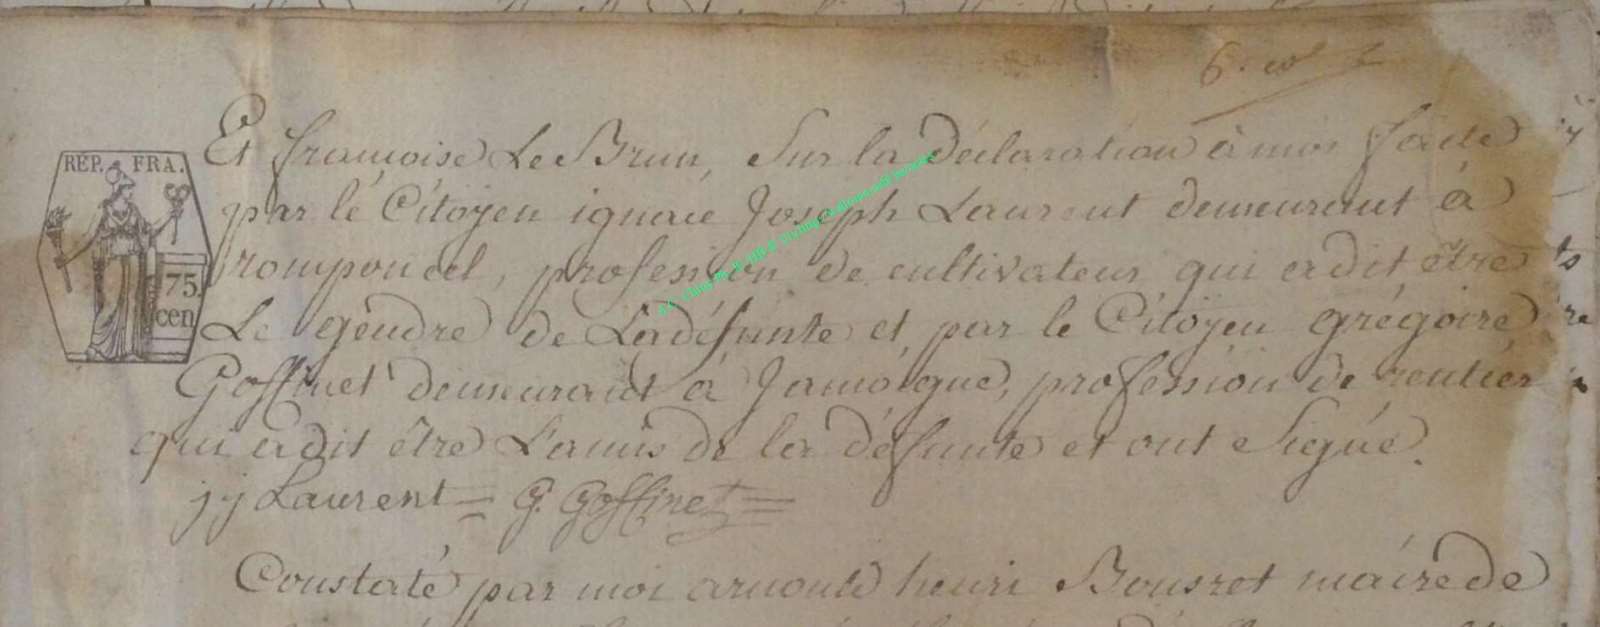 6.
REP. FRA.
75.
cen
Et françoise Le Brun, Sur la déclaration à moi faite
par le Citoyen ignace Joseph Laurent demeurant à
romponcel, profession de cultivateur qui a dit être
Le gendre de Ladéfunte et par le Citoyen grégoire
Goffinet demeurant à Jamoigne, profession de rentier
qui a dit être L'amis de la défunte et ont Signé.
j j Laurent = G. Goffinet =
Constaté par moi arnould henri Bousret maire de